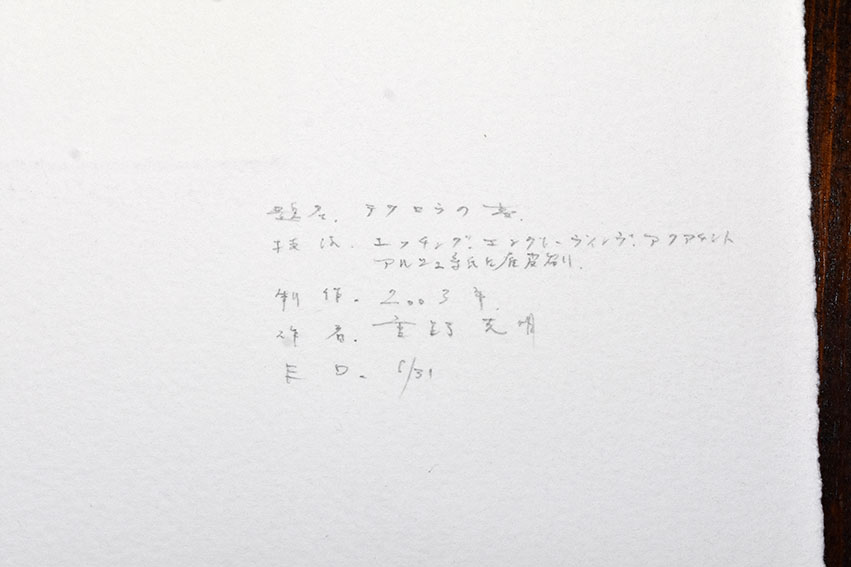 題名. テクロラの
技法. エッチング、エングレーヴィング、アクアチント
アルシュ
制作. 2003年.
作者. 重野克明
ED. /31